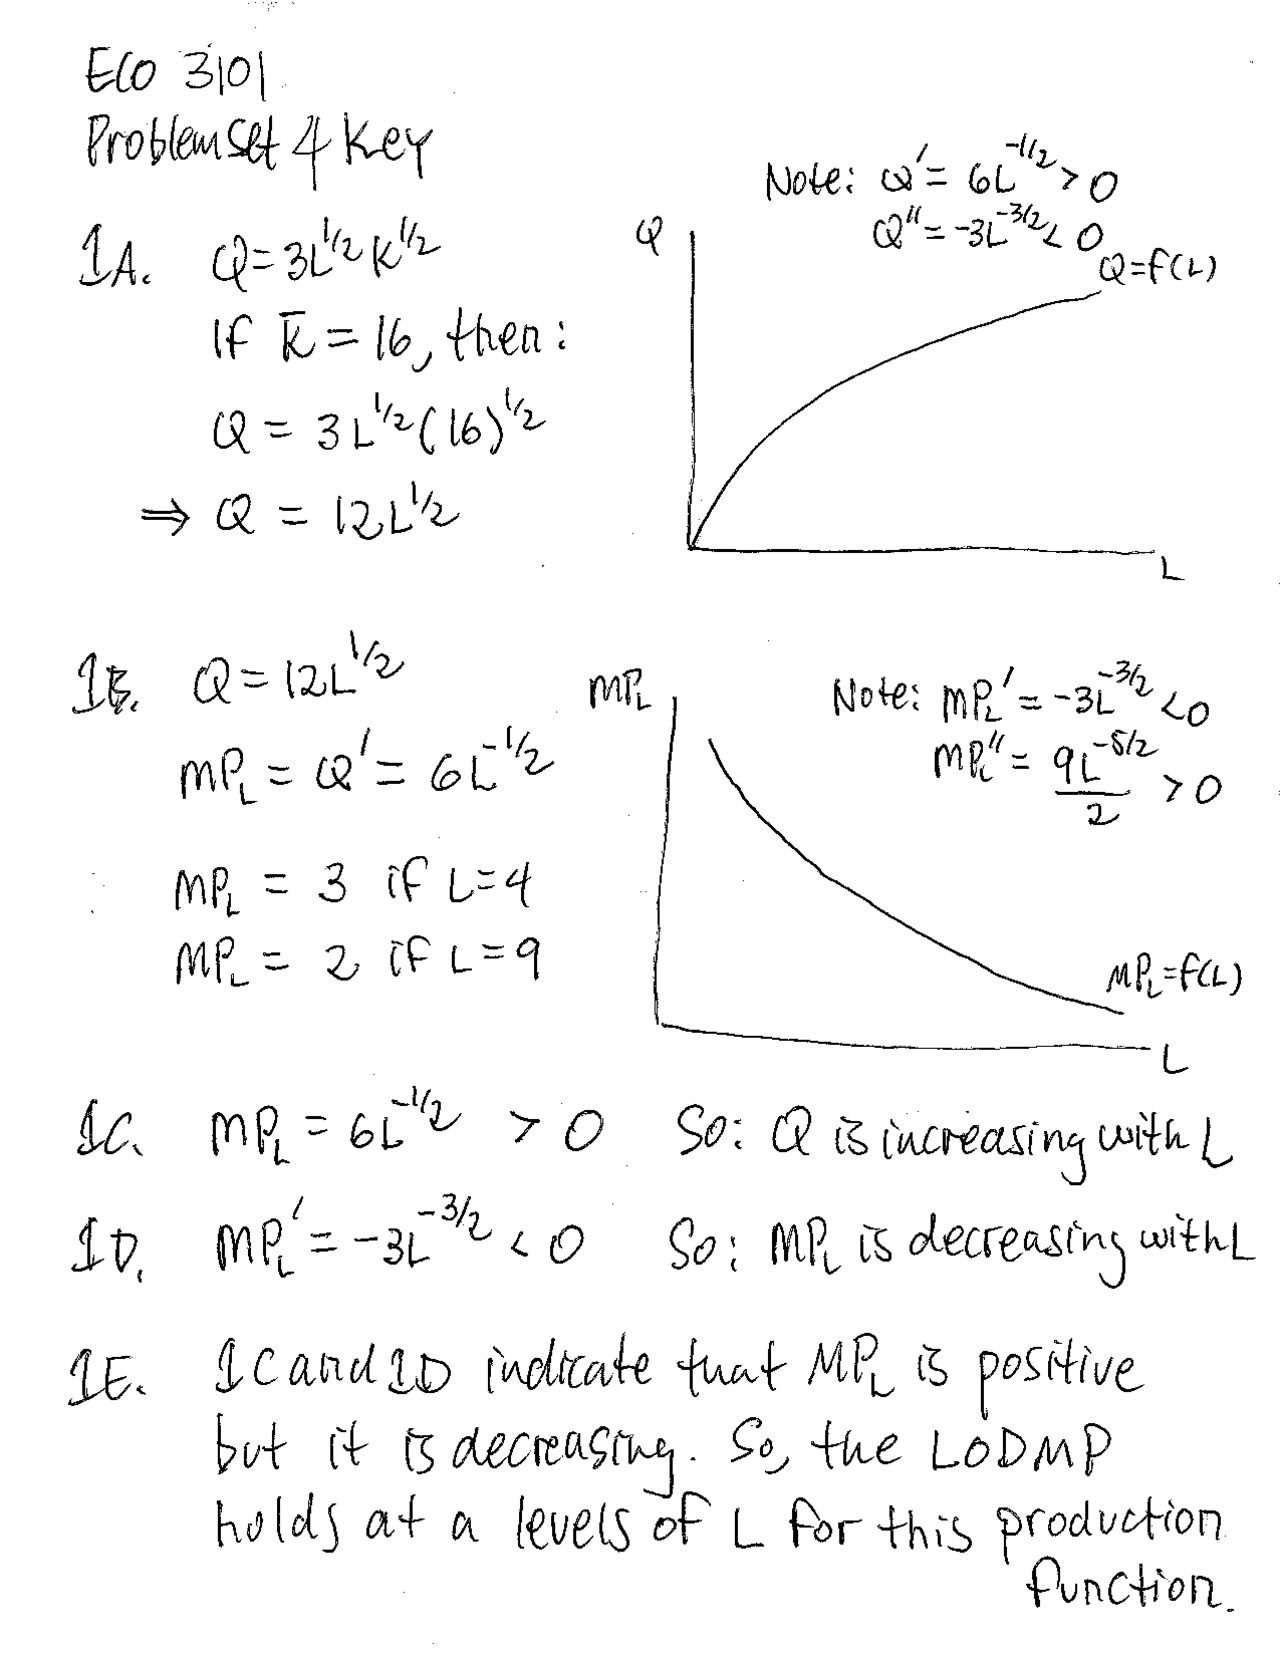 ECO 3101
Problem Set 4 Key
Note: Q' = 6L^-1/2 > 0
Q'' = -3L^-3/2 < 0
1A. Q = 3L^1/2 K^1/2
Q
Q = f(L)
If K̄ = 16, then:
Q = 3L^1/2 (16)^1/2
⇒ Q = 12L^1/2
L
1B. Q = 12L^1/2
MP_L
Note: MP_L' = -3L^-3/2 < 0
MP_L'' = 9L^-5/2 / 2 > 0
MP_L = Q' = 6L^-1/2
MP_L = 3 if L = 4
MP_L = 2 if L = 9
MP_L = f(L)
L
1C. MP_L = 6L^-1/2 > 0 So: Q is increasing with L
1D. MP_L' = -3L^-3/2 < 0 So: MP_L is decreasing with L
1E. 1C and 1D indicate that MP_L is positive
but it is decreasing. So, the LODMP
holds at a levels of L for this production
function.